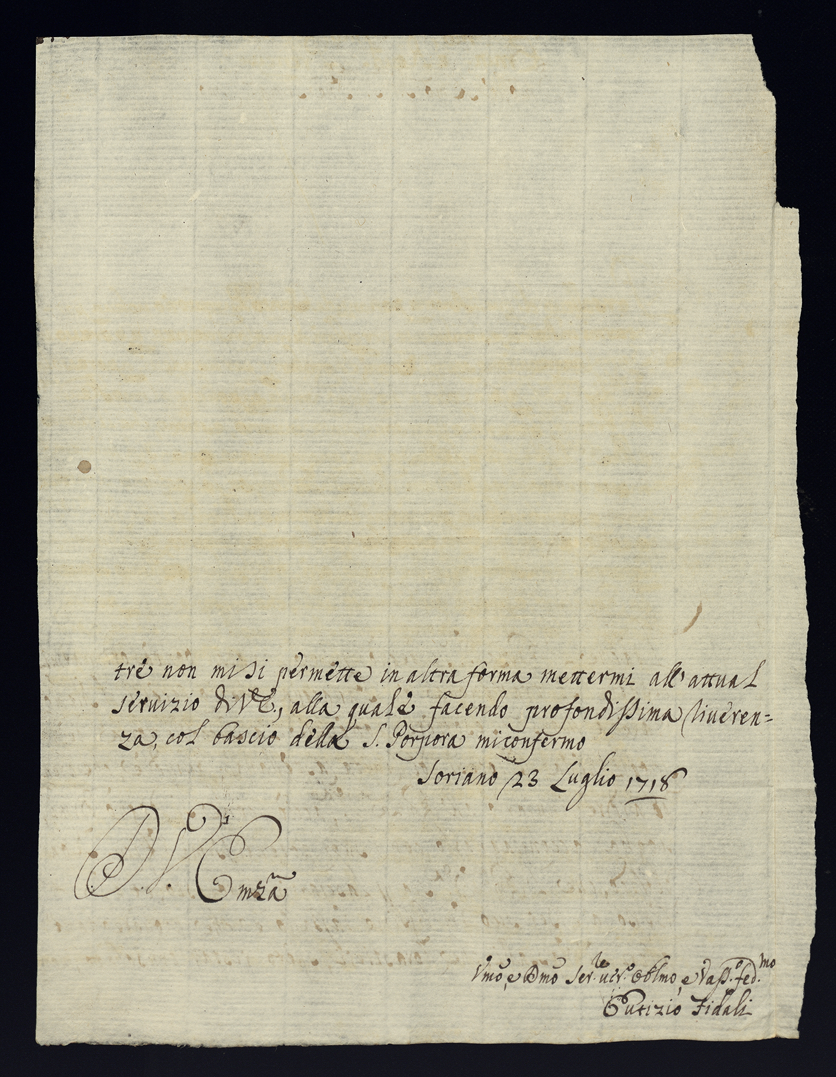 trè non mi si permette in altra forma mettermi all'attual
servizio di V.E., alla quale facendo profondissima riveren-
za, col bascio della S. Porpora mi confermo
Soriano 23 Luglio 1718
D. V. Emza
Umo, e Dmo Ser.re ver.o Obblmo, e Vass.o fed.mo
Eutizio Fidali